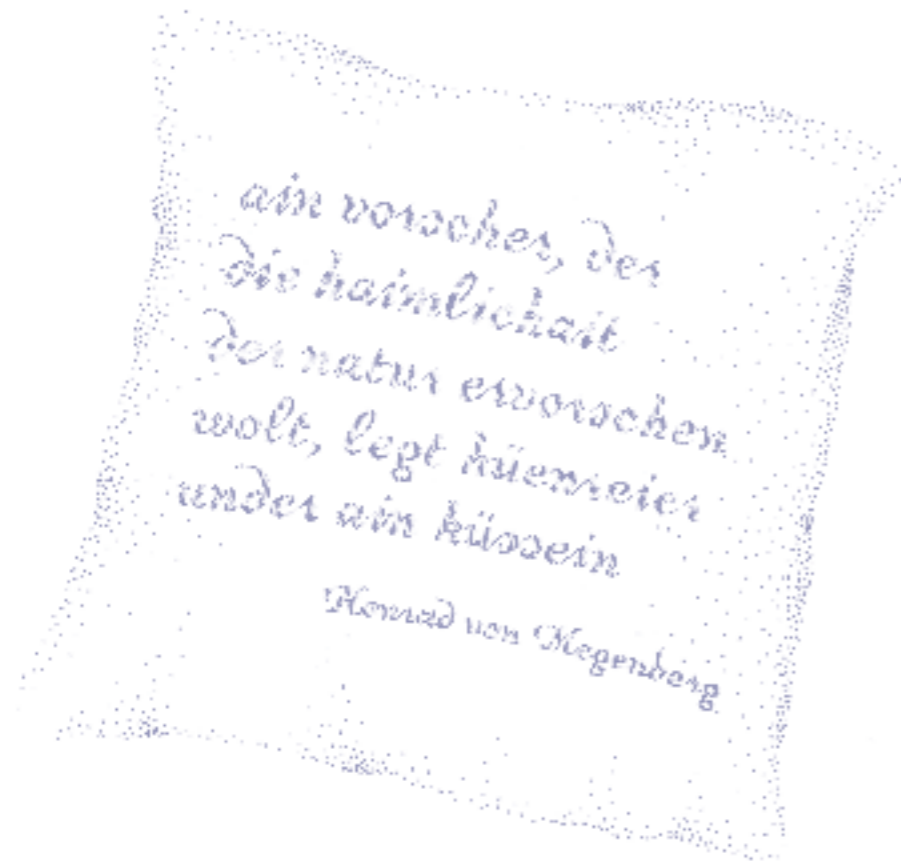 ain vorscher, der
die haimlichait
der natur ervorschen
wolt, legt hüenreier
under ain küssein
Konrad von Megenberg